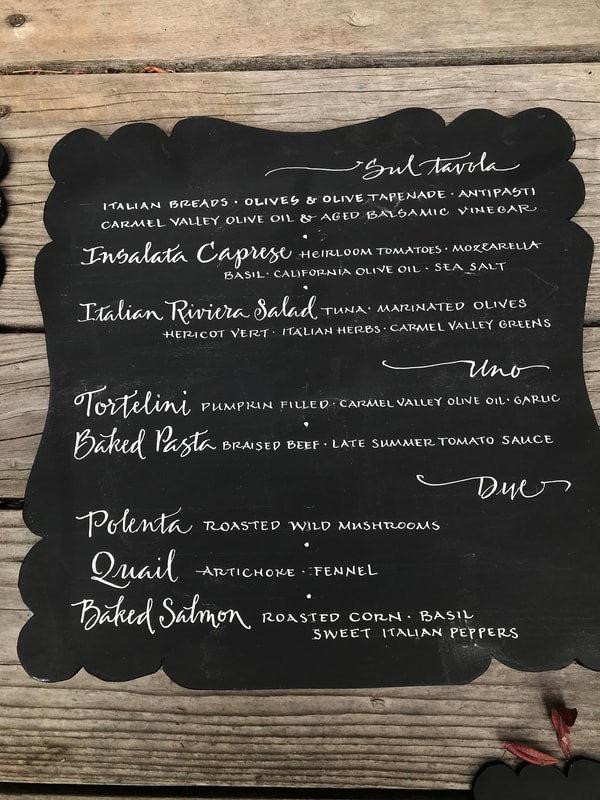 Sul tavola
ITALIAN BREADS · OLIVES & OLIVE TAPENADE · ANTIPASTI
CARMEL VALLEY OLIVE OIL & AGED BALSAMIC VINEGAR
Insalata Caprese HEIRLOOM TOMATOES · MOZZARELLA
BASIL · CALIFORNIA OLIVE OIL · SEA SALT
Italian Riviera Salad TUNA · MARINATED OLIVES
HERICOT VERT · ITALIAN HERBS · CARMEL VALLEY GREENS
Uno
Tortelini PUMPKIN FILLED · CARMEL VALLEY OLIVE OIL · GARLIC
Baked Pasta BRAISED BEEF · LATE SUMMER TOMATO SAUCE
Dye
Polenta ROASTED WILD MUSHROOMS
Quail ARTICHOKE · FENNEL
Baked Salmon ROASTED CORN · BASIL
SWEET ITALIAN PEPPERS